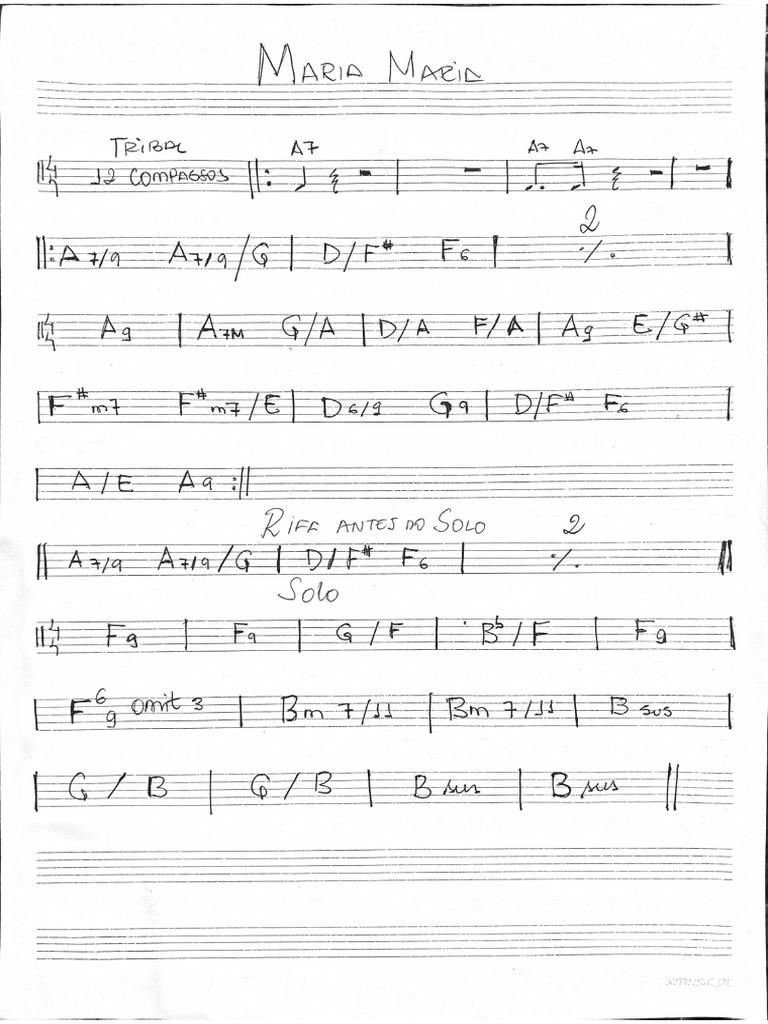 MARIA MARIA
TRIBAL A7 A7 A7
12 COMPASSOS
2
A7/9 A7/9/G | D/F# F6 | ٪
A9 | A7M G/A | D/A F/A | A9 E/G#
F#m7 F#m7/E | D6/9 G9 | D/F# F6
A/E A9 :||
RIFF ANTES DO SOLO 2
A7/9 A7/9/G | D/F# F6 | ٪
SOLO
F9 | F9 | G/F | Bb/F | F9
F6 9 omit 3 | Bm 7/11 | Bm 7/11 | B sus
G / B | G / B | B sus | B sus